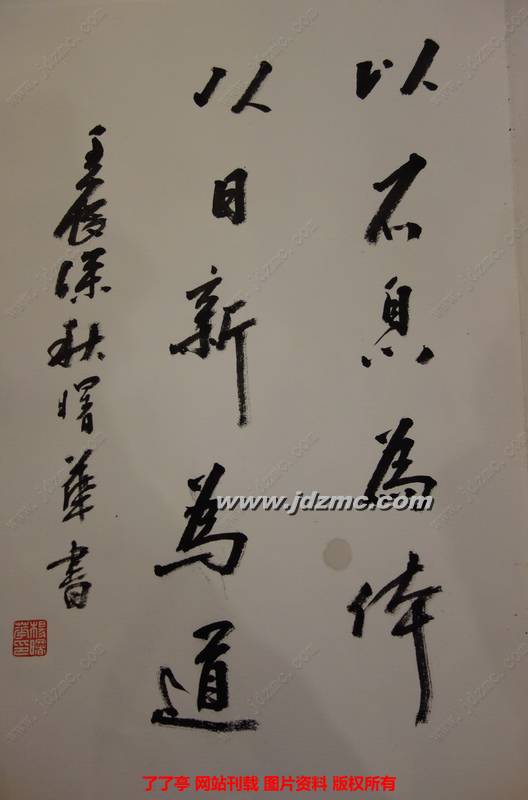 以不息為体
以日新為道
壬辰深秋曙華書
楊曙華印
www.jdzmc.com
了了亭 网站刊载 图片资料 版权所有